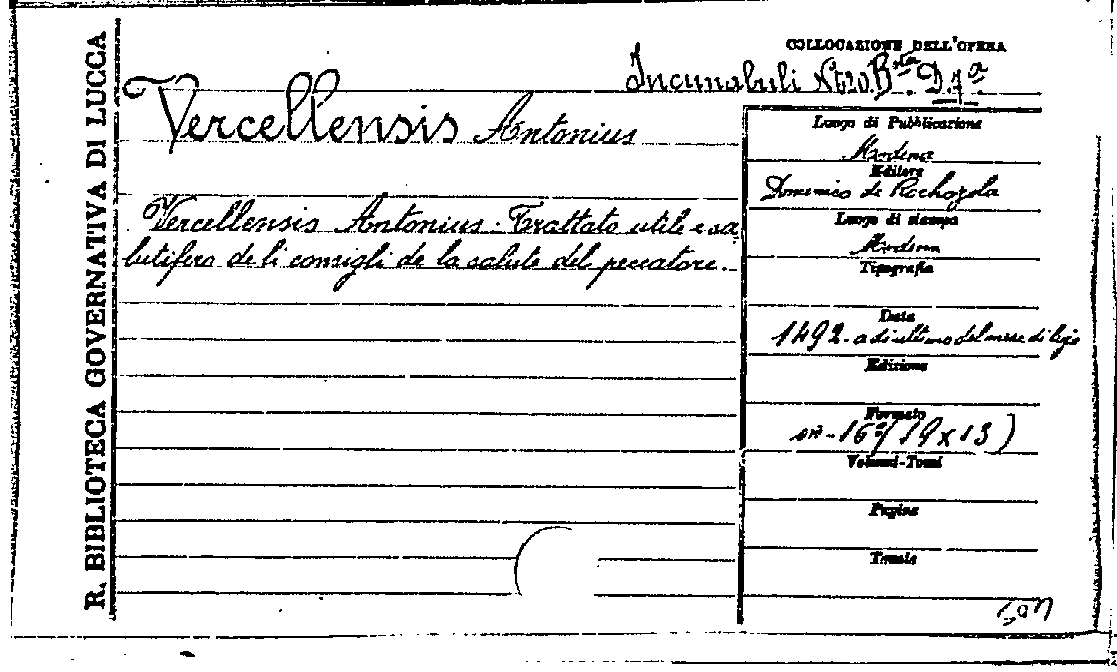 R. BIBLIOTECA GOVERNATIVA DI LUCCA
COLLOCAZIONE DELL'OPERA
Incunabuli N. 620. Bta. D. 7a
Vercellensis Antonius
Vercellensis Antonius. Trattato utile e sa
lutifero de li consigli de la salute del peccatore.
Luogo di Pubblicazione
Modena
Editore
Domenico de Rochozola
Luogo di stampa
Modena
Tipografia
Data
1492. a di ultimo del mese di
Edizione
Formato
in-16º (19x13)
Volumi-Tomi
Pagine
Tavole